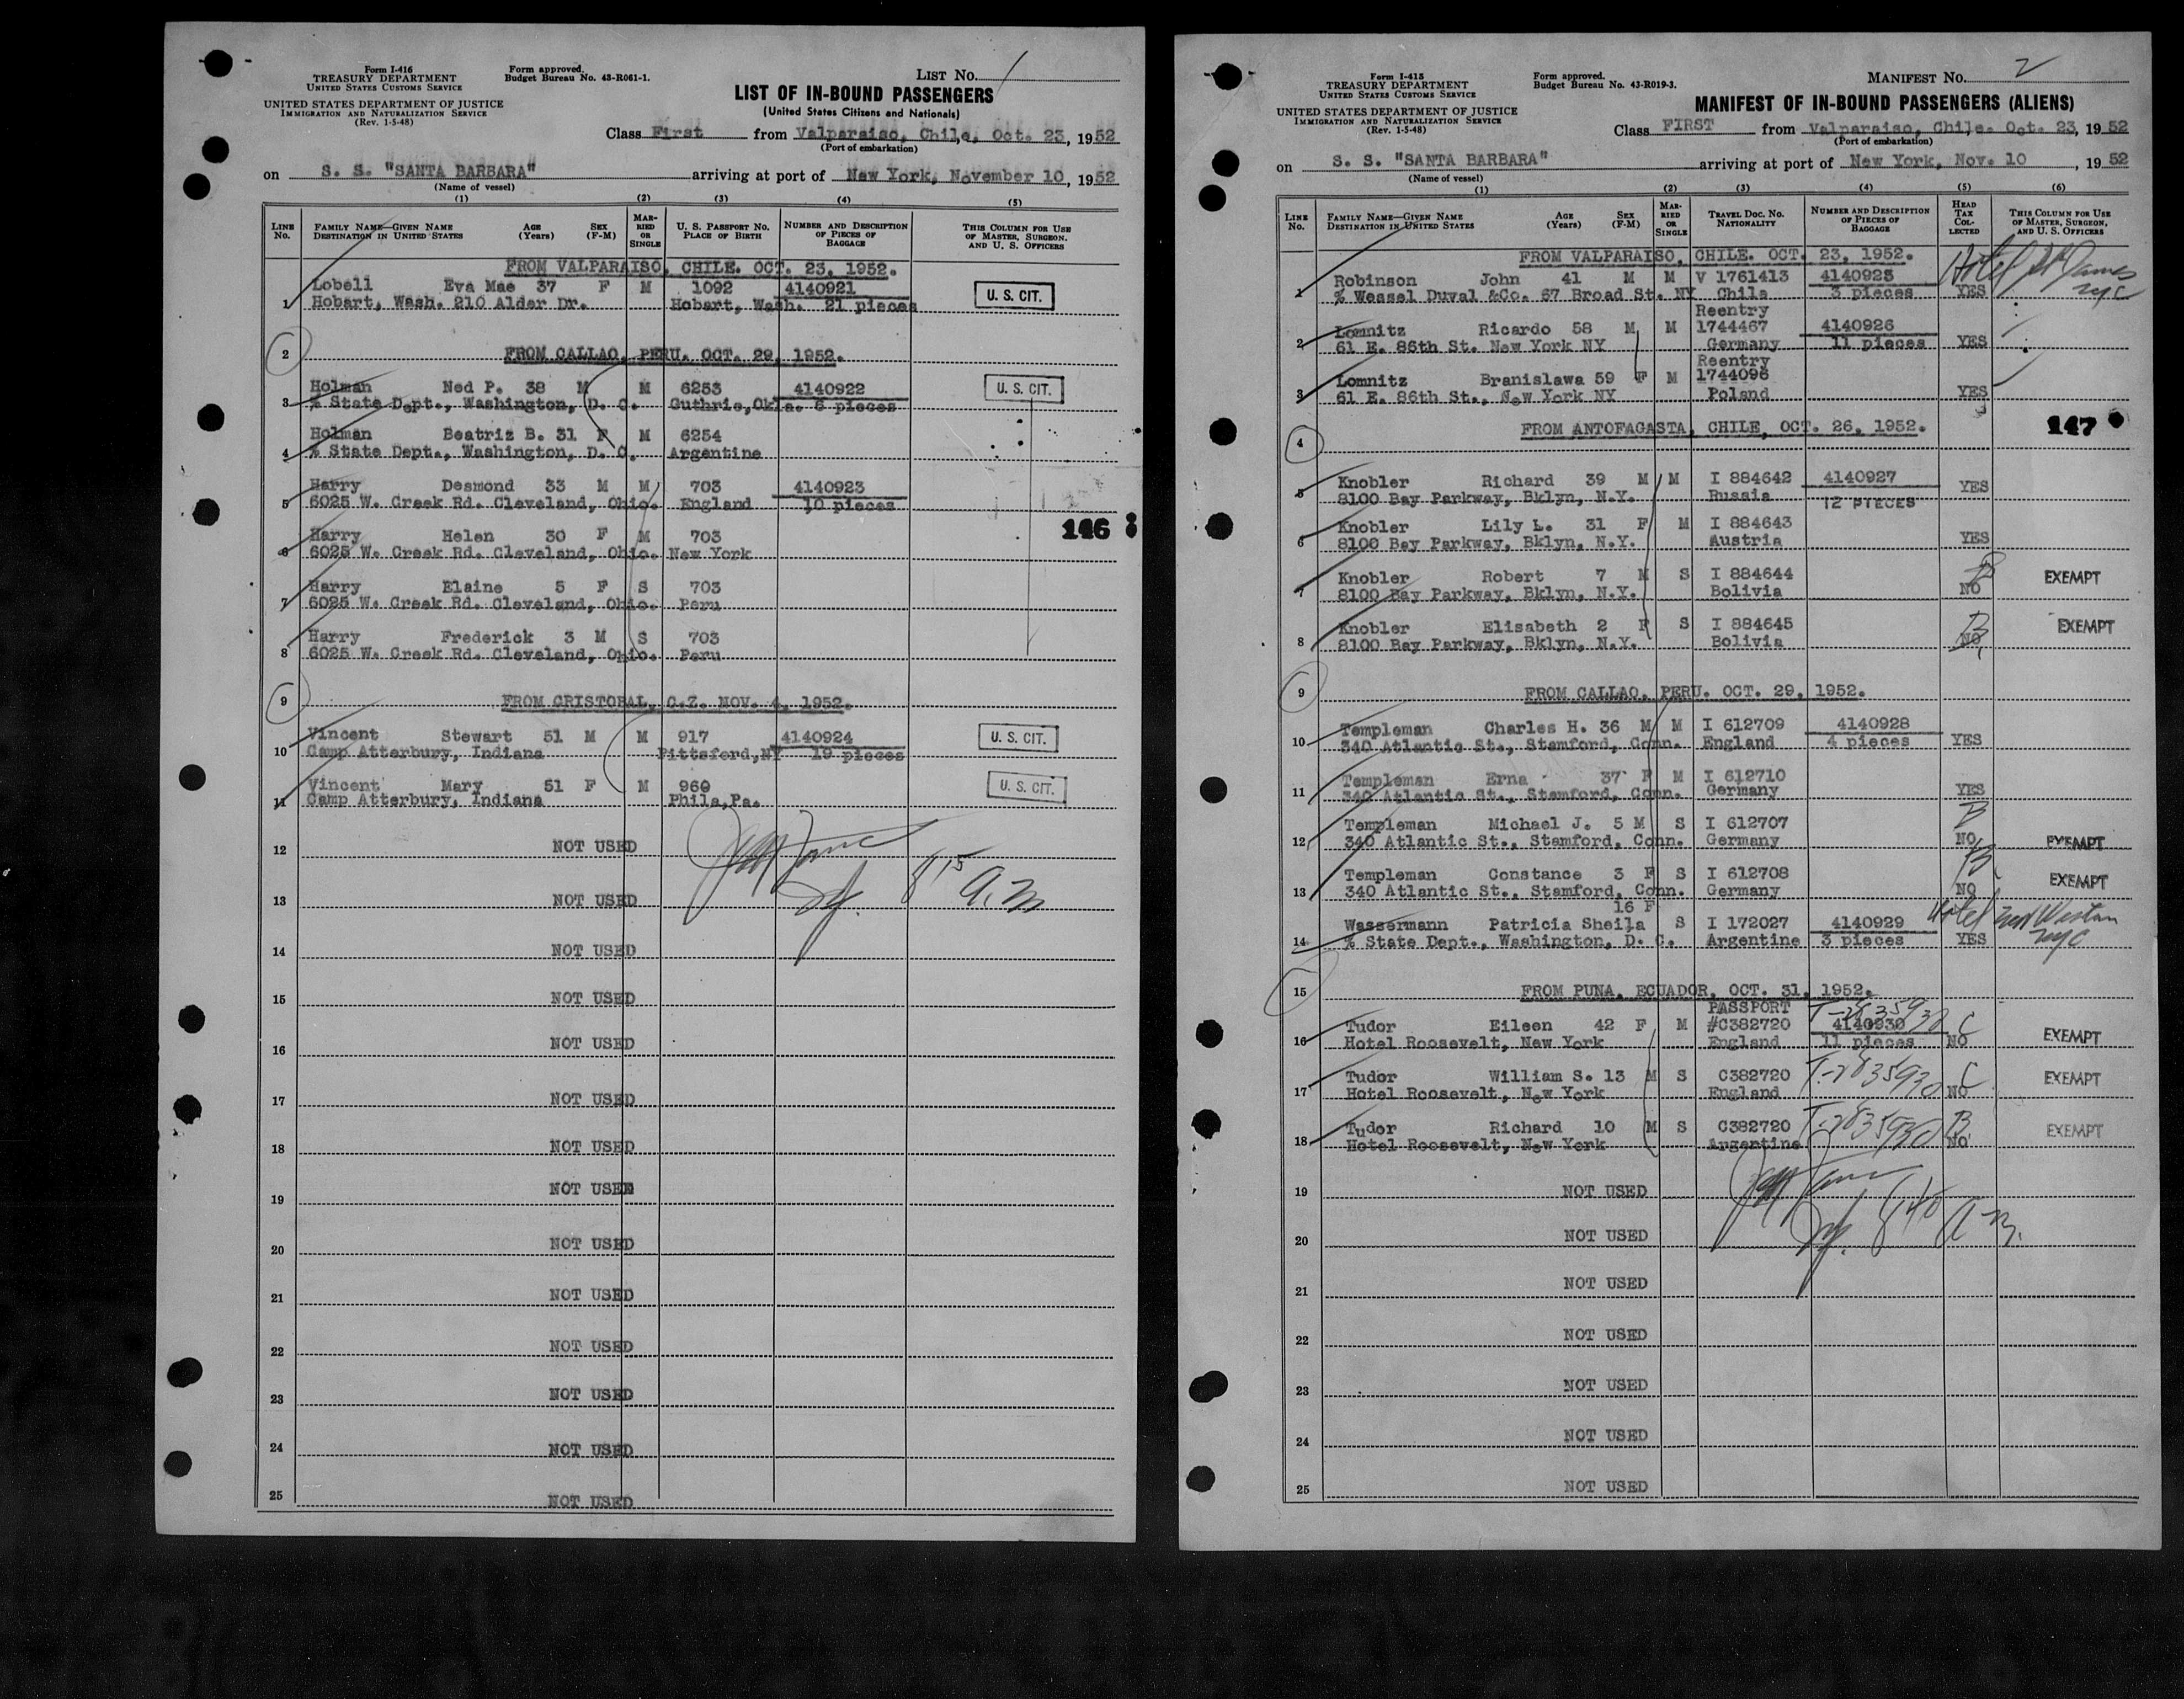 Form I-416
TREASURY DEPARTMENT
UNITED STATES CUSTOMS SERVICE
UNITED STATES DEPARTMENT OF JUSTICE
IMMIGRATION AND NATURALIZATION SERVICE
(Rev. 1-5-48)
Form approved.
Budget Bureau No. 43-R061-1.
LIST NO. 1
LIST OF IN-BOUND PASSENGERS
(United States Citizens and Nationals)
Class First from Valparaiso, Chile, Oct. 23, 1952
(Port of embarkation)
on S. S. "SANTA BARBARA" arriving at port of New York, November 10, 1952
(Name of vessel)
(1) (2) (3) (4) (5)
LINE No. FAMILY NAME—GIVEN NAME DESTINATION IN UNITED STATES AGE (Years) SEX (F-M) MARRIED OR SINGLE U. S. PASSPORT NO. PLACE OF BIRTH NUMBER AND DESCRIPTION OF PIECES OF BAGGAGE THIS COLUMN FOR USE OF MASTER, SURGEON, AND U. S. OFFICERS
FROM VALPARAISO, CHILE. OCT. 23, 1952.
Lobell Eva Mae 37 F M 1092 4140921 U. S. CIT.
1 Hobart, Wash. 210 Alder Dr. Hobart, Wash. 21 pieces
2 FROM CALLAO, PERU. OCT. 29, 1952.
Holman Ned P. 38 M M 6253 4140922 U. S. CIT.
3 % State Dept., Washington, D. C. Guthrie, Okla. 6 pieces
Holman Beatriz B. 31 F M 6254
4 % State Dept., Washington, D. C. Argentine
Harry Desmond 33 M M 703 4140923
5 6025 W. Creek Rd. Cleveland, Ohio. England 10 pieces
146
Harry Helen 30 F M 703
6 6025 W. Creek Rd. Cleveland, Ohio. New York
Harry Elaine 5 F S 703
7 6025 W. Creek Rd. Cleveland, Ohio. Peru
Harry Frederick 3 M S 703
8 6025 W. Creek Rd. Cleveland, Ohio. Peru
9 FROM CRISTOBAL, C.Z. NOV. 4, 1952.
Vincent Stewart 51 M M 917 4140924 U. S. CIT.
10 Camp Atterbury, Indiana Pittsford, NY 19 pieces
Vincent Mary 51 F M 960 U. S. CIT.
11 Camp Atterbury, Indiana Phila, Pa.
12 NOT USED
13 NOT USED 8 15 A.M
14 NOT USED
15 NOT USED
16 NOT USED
17 NOT USED
18 NOT USED
19 NOT USED
20 NOT USED
21 NOT USED
22 NOT USED
23 NOT USED
24 NOT USED
25 NOT USED
Form I-415
TREASURY DEPARTMENT
UNITED STATES CUSTOMS SERVICE
UNITED STATES DEPARTMENT OF JUSTICE
IMMIGRATION AND NATURALIZATION SERVICE
(Rev. 1-5-48)
Form approved.
Budget Bureau No. 43-R019-3.
MANIFEST NO. 2
MANIFEST OF IN-BOUND PASSENGERS (ALIENS)
Class FIRST from Valparaiso, Chile. Oct. 23, 1952
(Port of embarkation)
on S. S. "SANTA BARBARA" arriving at port of New York, Nov. 10, 1952
(Name of vessel)
(1) (2) (3) (4) (5) (6)
LINE No. FAMILY NAME—GIVEN NAME DESTINATION IN UNITED STATES AGE (Years) SEX (F-M) MARRIED OR SINGLE TRAVEL DOC. NO. NATIONALITY NUMBER AND DESCRIPTION OF PIECES OF BAGGAGE HEAD TAX COLLECTED THIS COLUMN FOR USE OF MASTER, SURGEON, AND U. S. OFFICERS
FROM VALPARAISO, CHILE. OCT. 23, 1952.
Robinson John 41 M M V 1761413 4140925 Hotel St James
1 % Wessel Duval &Co. 67 Broad St. NY Chile 3 pieces YES NYC
Reentry
Lomnitz Ricardo 58 M M 1744467 4140926
2 61 E. 86th St. New York NY Germany 11 pieces YES
Reentry
Lomnitz Branislawa 59 F M 1744096
3 61 E. 86th St., New York NY Poland YES
4 FROM ANTOFAGASTA, CHILE, OCT. 26, 1952. 147
Knobler Richard 39 M M I 884642 4140927
5 8100 Bay Parkway, Bklyn, N.Y. Russia 12 PIECES YES
Knobler Lily L. 31 F M I 884643
6 8100 Bay Parkway, Bklyn, N.Y. Austria YES
Knobler Robert 7 M S I 884644 B EXEMPT
7 8100 Bay Parkway, Bklyn, N.Y. Bolivia NO
Knobler Elisabeth 2 F S I 884645 B EXEMPT
8 8100 Bay Parkway, Bklyn, N.Y. Bolivia NO
9 FROM CALLAO, PERU. OCT. 29, 1952.
Templeman Charles H. 36 M M I 612709 4140928
10 340 Atlantic St., Stamford, Conn. England 4 pieces YES
Templeman Erna 37 F M I 612710
11 340 Atlantic St., Stamford, Conn. Germany YES
Templeman Michael J. 5 M S I 612707 B
12 340 Atlantic St., Stamford, Conn. Germany NO EXEMPT
Templeman Constance 3 F S I 612708 B EXEMPT
13 340 Atlantic St., Stamford, Conn. Germany NO
16 F
Wassermann Patricia Sheila S I 172027 4140929 Hotel New Weston
14 % State Dept., Washington, D. C. Argentine 3 pieces YES NYC
15 FROM PUNA, ECUADOR, OCT. 31, 1952.
PASSPORT T-2835930
Tudor Eileen 42 F M #C382720 4140930 C EXEMPT
16 Hotel Roosevelt, New York England 11 pieces NO
Tudor William S. 13 M S C382720 T-2835930 C EXEMPT
17 Hotel Roosevelt, New York England NO
Tudor Richard 10 M S C382720 T-2835930 B EXEMPT
18 Hotel Roosevelt, New York Argentine NO
19 NOT USED
20 NOT USED 8 40 A.M.
21 NOT USED
22 NOT USED
23 NOT USED
24 NOT USED
25 NOT USED